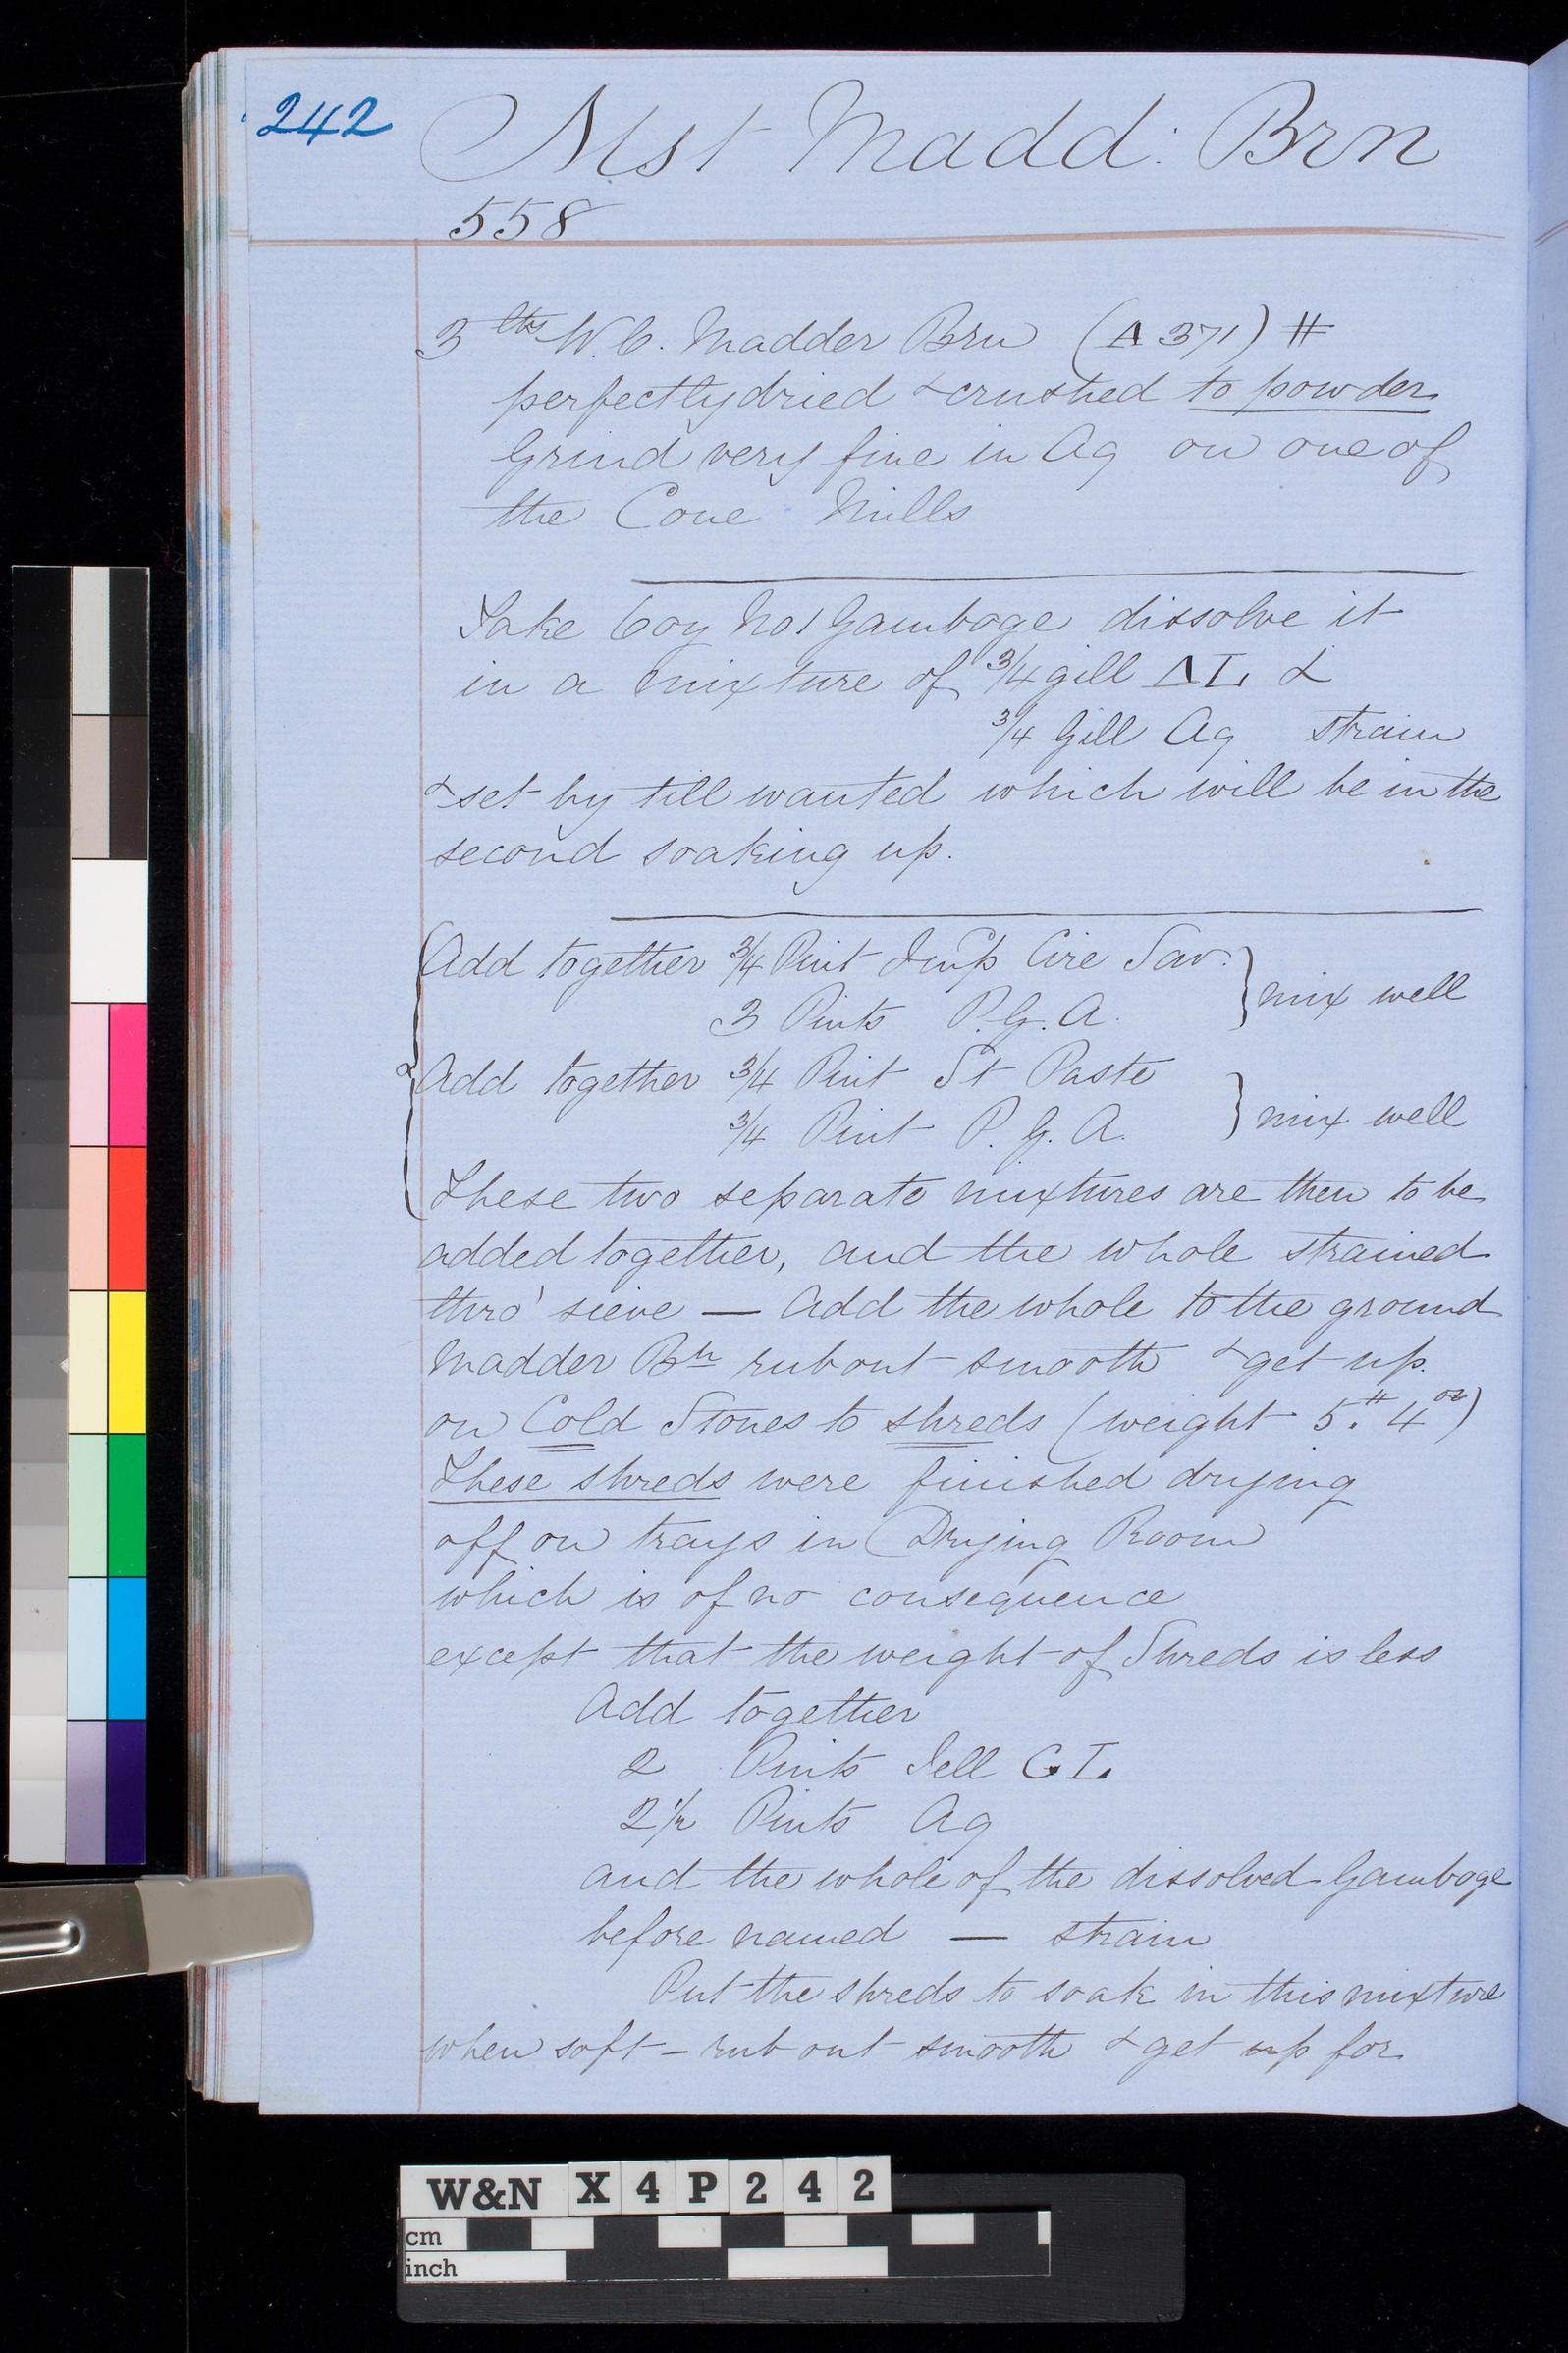 242
Mst Madd: Brn
558
3 lbs W.C. Madder Brn (Δ 371) #
perfectly dried & crushed to powder
Grind very fine in Aq on one of
the Cone Mills
Take 6 oz No 1 Gamboge dissolve it
in a mixture of 3/4 gill ΔL &
3/4 Gill Aq strain
& set by till wanted which will be in the
second soaking up.
Add together 3/4 Pint Cire Sav. } mix well
3 Pints P.G.A.
& Add together 3/4 Pint St Paste
3/4 Pint P.G.A. } mix well
These two separate mixtures are then to be
added together, and the whole strained
thro' sieve — Add the whole to the ground
Madder Bn rub out smooth & get up
on Cold Stones to shreds (weight 5.# 4oz)
These shreds were finished drying
off on trays in Drying Room
which is of no consequence
except that the weight of Shreds is less
Add together
2 Pints Jell GL
2 1/2 Pints Aq
and the whole of the dissolved Gamboge
before named — strain
Put the shreds to soak in this mixture
when soft – rub out smooth & get up for
W&N X4P242
cm
inch